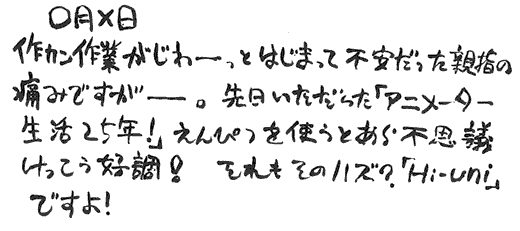 〇月×日
作カン作業がじわーっとはじまって不安だった親指の
痛みですがー。先日いただいた「アニメーター
生活25年!」えんぴつを使うとあら不思議
けっこう好調! それもそのハズ?「Hi-uni」
ですよ!